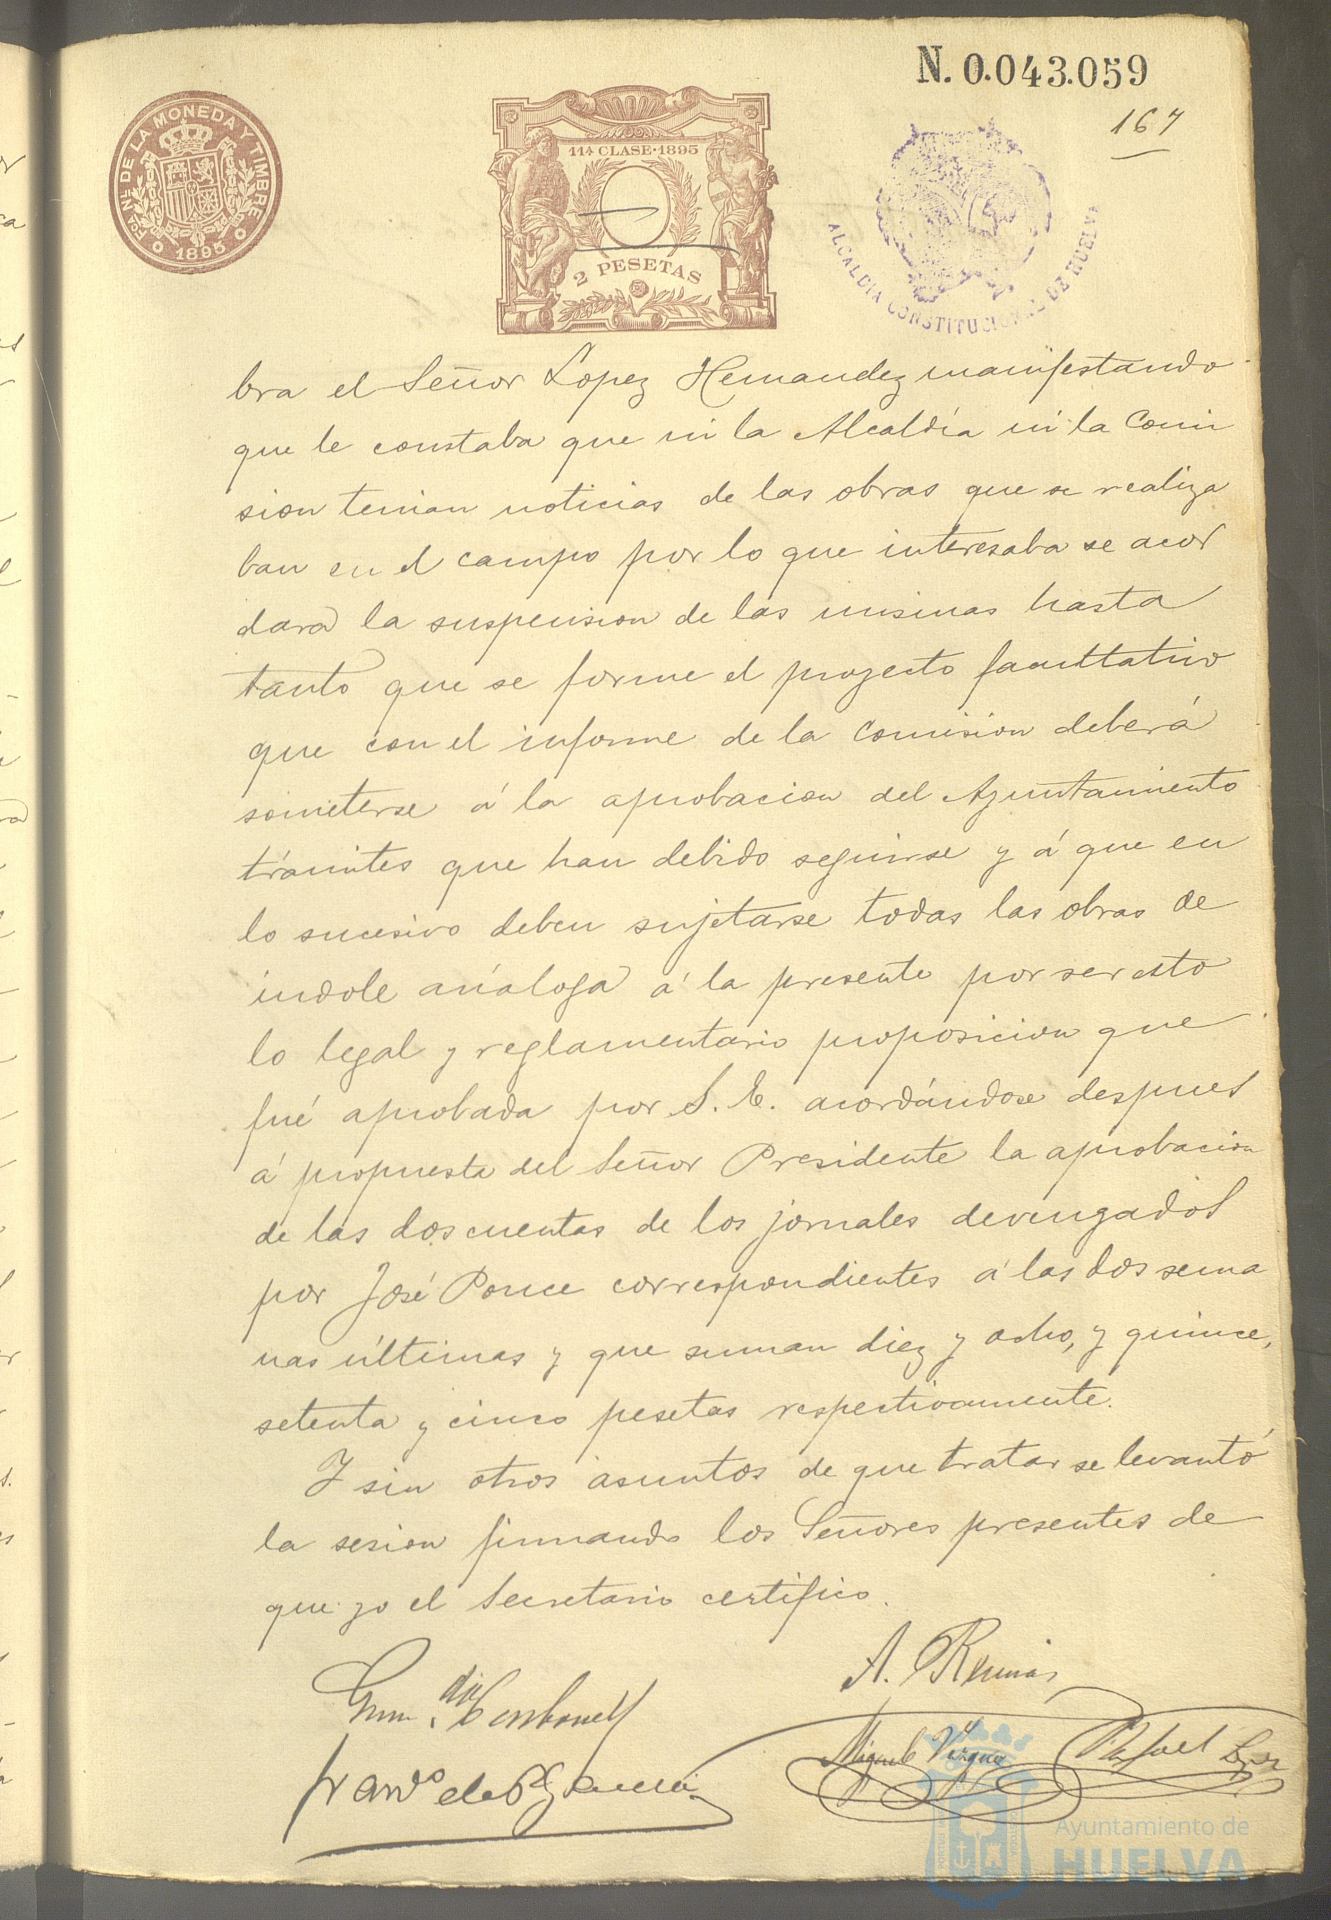 N. 0.043.059
167
Fca. Nl. DE LA MONEDA Y TIMBRE
1895
11ª CLASE·1895
2 PESETAS
ALCALDIA CONSTITUCIONAL DE HUELVA
bra el Señor Lopez Hernandez manifestando
que le constaba que ni la Alcaldía ni la Comi
sion tenian noticias de las obras que se realiza
ban en el campo por lo que interesaba se acor
dara la suspension de las mismas hasta
tanto que se forme el proyecto facultativo
que con el informe de la Comisión deberá
someterse á la aprobacion del Ayuntamiento
trámites que han debido seguirse y á que en
lo sucesivo deben sujetarse todas las obras de
índole análoga á la presente por ser esto
lo legal y reglamentario proposicion que
fué aprobada por S. E. acordándose despues
á propuesta del Señor Presidente la aprobacion
de las dos cuentas de los jornales devengados
por José Ponce correspondientes á las dos sema
nas últimas y que suman diez y ocho, y quince,
setenta y cinco pesetas respectivamente.
Y sin otros asuntos de que tratar se levantó
la sesion firmando los Señores presentes de
que yo el Secretario certifico.
A.
Miguel Vazquez Rafael Lopez
Franco de P. Garcia
Ayuntamiento de
HUELVA